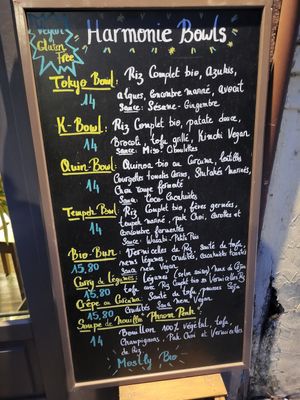 Vegan
Gluten
Free
Harmonie Bowls
Tokyo Bowl: Riz Complet bio, Azukis,
14 algues, concombre mariné, avocat
Sauce: Sésame-Gingembre
K-Bowl: Riz Complet bio, patate douce,
14 Brocoli, tofu grillé, Kimchi Vegan
Sauce: Miso
Quin-Bowl: Quinoa bio au Curcuma, lentilles
14 Courgettes, Shiitakés marinés,
Chou rouge fermenté
Sauce: Coco-Cacahuètes
Tempeh Bowl: Riz Complet bio, fèves germées,
14 tempeh mariné, pak Choï, Carottes et
Concombre fermentés
Sauce: Wasabi-Petits Pois
Bio-Bun: Vermicelles de Riz, Sauté de tofu,
15,80 nems légumes, Crudités, cacahuètes
Sauce nem Vegan
Curry de Légumes: Légumes (selon saison)
15,80 tofu avec Riz Complet bio
Crêpe au Curcuma: Sauté de tofu, pousses Soja
15,80 Crudités Sauce nem Vegan.
Soupe de Nouilles "Phnom Penh"
14 Bouillon 100% végétal, tofu,
Champignons, Pak Choï et Vermicelles
de Riz
Mostly Bio